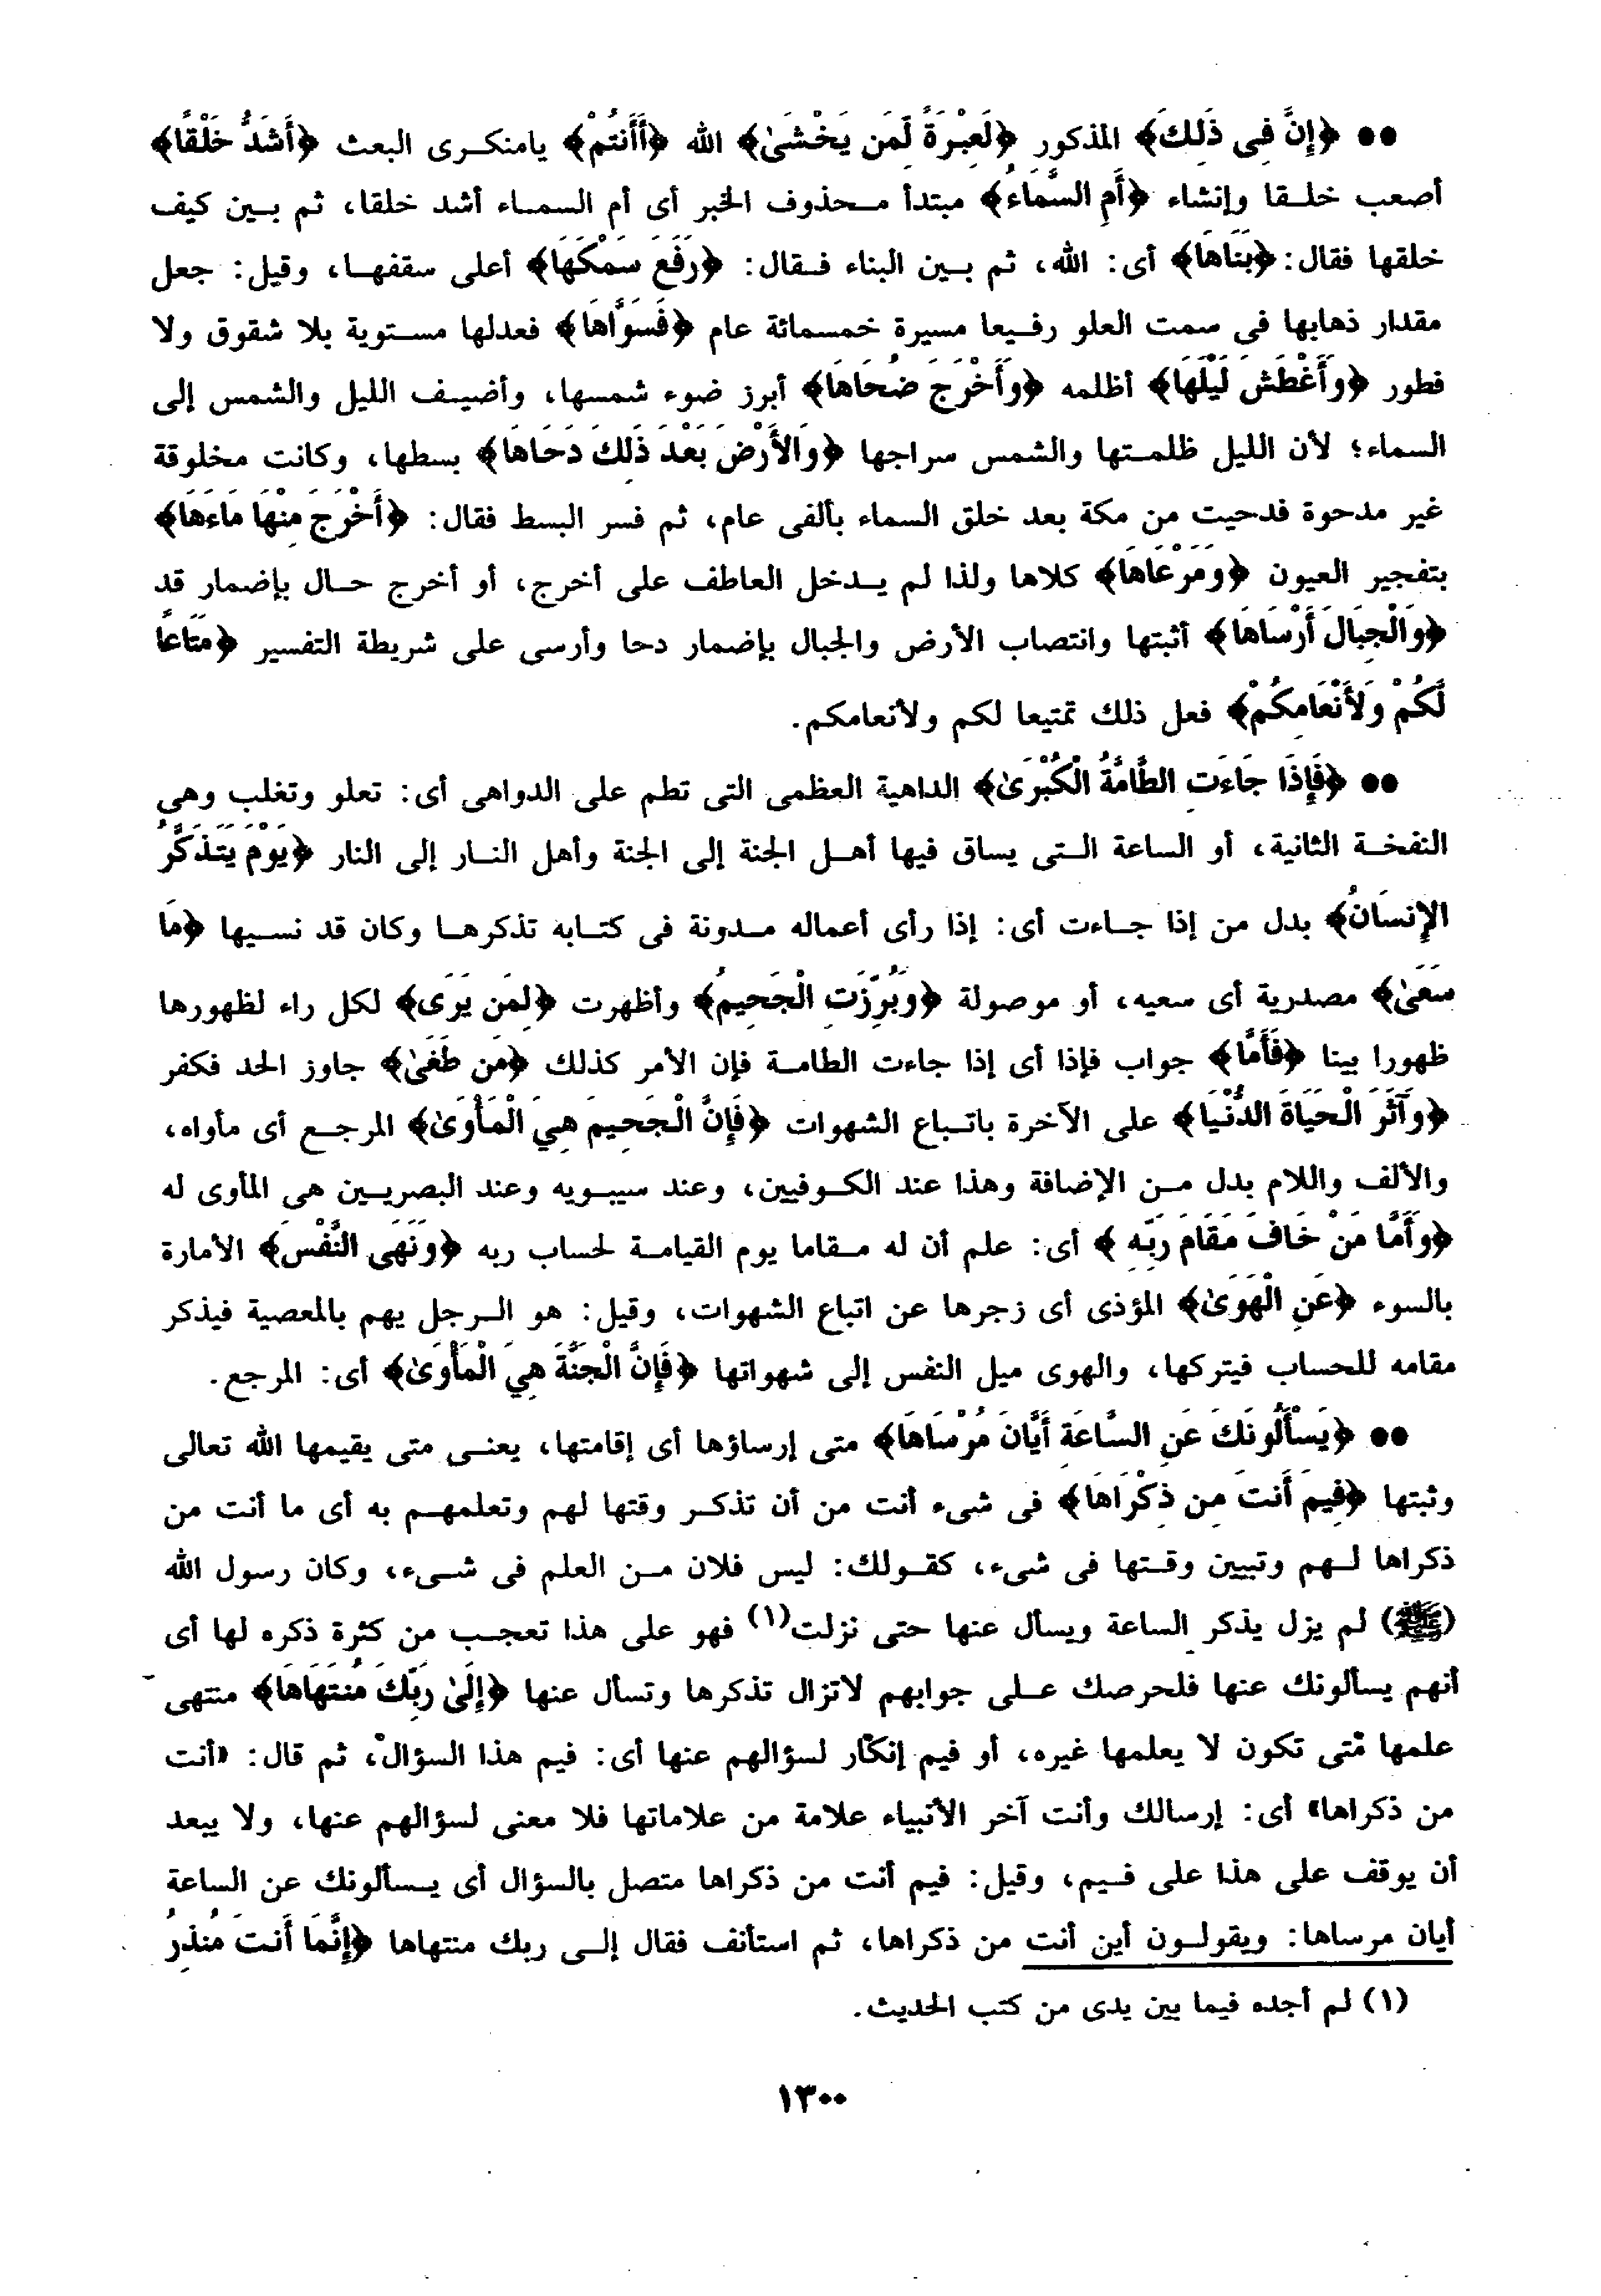 ●● ﴿إِنَّ فِى ذَلِكَ﴾ المذكور ﴿لَعِبْرَةً لِّمَن يَخْشَىٰ﴾ الله ﴿أَأَنتُمْ﴾ يامنكرى البعث ﴿أَشَدُّ خَلْقًا﴾
أصعب خلقا وإنشاء ﴿أَمِ السَّمَاءُ﴾ مبتدأ محذوف الخبر أى أم السماء أشد خلقا، ثم بين كيف
خلقها فقال: ﴿بَنَاهَا﴾ أى: الله، ثم بين البناء فقال: ﴿رَفَعَ سَمْكَهَا﴾ أعلى سقفها، وقيل: جعل
مقدار ذهابها فى سمت العلو رفيعا مسيرة خمسمائة عام ﴿فَسَوَّاهَا﴾ فعدلها مستوية بلا شقوق ولا
فطور ﴿وَأَغْطَشَ لَيْلَهَا﴾ أظلمه ﴿وَأَخْرَجَ ضُحَاهَا﴾ أبرز ضوء شمسها، وأضيف الليل والشمس إلى
السماء؛ لأن الليل ظلمتها والشمس سراجها ﴿وَالأَرْضَ بَعْدَ ذَلِكَ دَحَاهَا﴾ بسطها، وكانت مخلوقة
غير مدحوة فدحيت من مكة بعد خلق السماء بألفى عام، ثم فسر البسط فقال: ﴿أَخْرَجَ مِنْهَا مَاءَهَا﴾
بتفجير العيون ﴿وَمَرْعَاهَا﴾ كلاها ولذا لم يدخل العاطف على أخرج، أو أخرج حال بإضمار قد
﴿وَالْجِبَالَ أَرْسَاهَا﴾ أثبتها وانتصاب الأرض والجبال بإضمار دحا وأرسى على شريطة التفسير ﴿مَتَاعًا
لَّكُمْ وَلأَنْعَامِكُمْ﴾ فعل ذلك تمتيعا لكم ولأنعامكم.
●● ﴿فَإِذَا جَاءَتِ الطَّامَّةُ الْكُبْرَىٰ﴾ الداهية العظمى التى تطم على الدواهى أى: تعلو وتغلب وهى
النفخة الثانية، أو الساعة التى يساق فيها أهل الجنة إلى الجنة وأهل النار إلى النار ﴿يَوْمَ يَتَذَكَّرُ
الإِنسَانُ﴾ بدل من إذا جاءت أى: إذا رأى أعماله مدونة فى كتابه تذكرها وكان قد نسيها ﴿مَا
سَعَىٰ﴾ مصدرية أى سعيه، أو موصولة ﴿وَبُرِّزَتِ الْجَحِيمُ﴾ وأظهرت ﴿لِمَن يَرَى﴾ لكل راء لظهورها
ظهورا بينا ﴿فَأَمَّا﴾ جواب فإذا أى إذا جاءت الطامة فإن الأمر كذلك ﴿مَن طَغَىٰ﴾ جاوز الحد فكفر
﴿وَآثَرَ الْحَيَاةَ الدُّنْيَا﴾ على الآخرة باتباع الشهوات ﴿فَإِنَّ الْجَحِيمَ هِيَ الْمَأْوَىٰ﴾ المرجع أى مأواه،
والألف واللام بدل من الإضافة وهذا عند الكوفيين، وعند سيبويه وعند البصريين هى المأوى له
﴿وَأَمَّا مَنْ خَافَ مَقَامَ رَبِّهِ ﴾ أى: علم أن له مقاما يوم القيامة لحساب ربه ﴿وَنَهَى النَّفْسَ﴾ الأمارة
بالسوء ﴿عَنِ الْهَوَىٰ﴾ المؤذى أى زجرها عن اتباع الشهوات، وقيل: هو الرجل يهم بالمعصية فيذكر
مقامه للحساب فيتركها، والهوى ميل النفس إلى شهواتها ﴿فَإِنَّ الْجَنَّةَ هِيَ الْمَأْوَىٰ﴾ أى: المرجع.
●● ﴿يَسْأَلُونَكَ عَنِ السَّاعَةِ أَيَّانَ مُرْسَاهَا﴾ متى إرساؤها أى إقامتها، يعنى متى يقيمها الله تعالى
وثبتها ﴿فِيمَ أَنتَ مِن ذِكْرَاهَا﴾ فى شىء أنت من أن تذكر وقتها لهم وتعلمهم به أى ما أنت من
ذكراها لهم وتبيين وقتها فى شىء، كقولك: ليس فلان من العلم فى شىء، وكان رسول الله
(ﷺ) لم يزل يذكر الساعة ويسأل عنها حتى نزلت(١) فهو على هذا تعجب من كثرة ذكره لها أى
أنهم يسألونك عنها فلحرصك على جوابهم لاتزال تذكرها وتسأل عنها ﴿إِلَىٰ رَبِّكَ مُنتَهَاهَا﴾ منتهى
علمها متى تكون لا يعلمها غيره، أو فيم إنكار لسؤالهم عنها أى: فيم هذا السؤال، ثم قال: «أنت
من ذكراها» أى: إرسالك وأنت آخر الأنبياء علامة من علاماتها فلا معنى لسؤالهم عنها، ولا يبعد
أن يوقف على هذا على فيم، وقيل: فيم أنت من ذكراها متصل بالسؤال أى يسألونك عن الساعة
أيان مرساها: ويقولون أين أنت من ذكراها، ثم استأنف فقال إلى ربك منتهاها ﴿إِنَّمَا أَنتَ مُنذِرُ
(١) لم أجده فيما بين يدى من كتب الحديث.
١٣٠٠